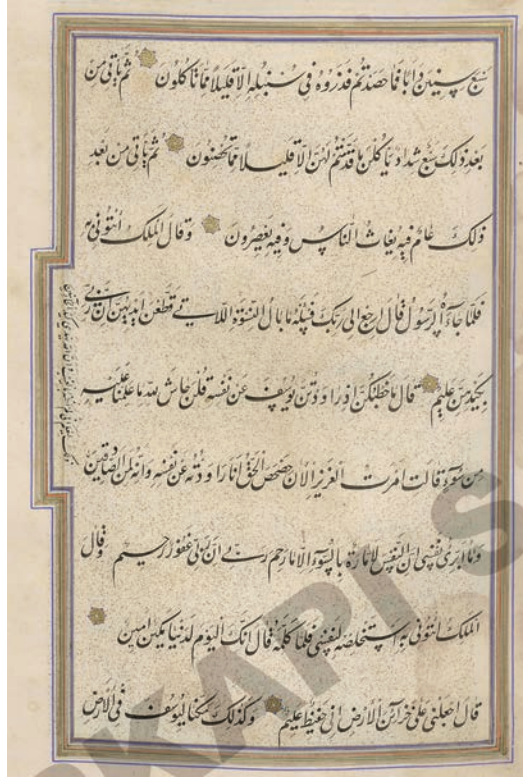 سَبْعَ سِنِينَ دَاَبًا فَمَا حَصَدْتُمْ فَذَرُوهُ فِي سُنْبُلِهِ اِلَّا قَلِيلًا مِمَّا تَاكُلُونَ ثُمَّ يَاتِي مِنْ
بَعْدِ ذٰلِكَ سَبْعٌ شِدَادٌ يَاكُلْنَ مَا قَدَّمْتُمْ لَهُنَّ اِلَّا قَلِيلًا مِمَّا تُحْصِنُونَ ثُمَّ يَاتِي مِنْ بَعْدِ
ذٰلِكَ عَامٌ فِيهِ يُغَاثُ النَّاسُ وَفِيهِ يَعْصِرُونَ وَقَالَ الْمَلِكُ ائْتُونِي بِهِ
فَلَمَّا جَآءَهُ الرَّسُولُ قَالَ ارْجِعْ اِلٰى رَبِّكَ فَسْئَلْهُ مَا بَالُ النِّسْوَةِ اللَّاتِي قَطَّعْنَ اَيْدِيَهُنَّ اِنَّ رَبِّي
بِكَيْدِهِنَّ عَلِيمٌ قَالَ مَا خَطْبُكُنَّ اِذْ رَاوَدْتُنَّ يُوسُفَ عَنْ نَفْسِهِ قُلْنَ حَاشَ لِلّٰهِ مَا عَلِمْنَا عَلَيْهِ
مِنْ سُوٓءٍ قَالَتِ امْرَاَتُ الْعَزِيزِ الْاٰنَ حَصْحَصَ الْحَقُّ اَنَا رَاوَدْتُهُ عَنْ نَفْسِهِ وَاِنَّهُ لَمِنَ الصَّادِقِينَ
ذلك ليعلم اني لم اخنه بالغيب وان الله لا يهدي كيد الخائنين
وَمَا اُبَرِّئُ نَفْسِي اِنَّ النَّفْسَ لَاَمَّارَةٌ بِالسُّوٓءِ اِلَّا مَا رَحِمَ رَبِّي اِنَّ رَبِّي غَفُورٌ رَحِيمٌ وَقَالَ
الْمَلِكُ ائْتُونِي بِهِ اَسْتَخْلِصْهُ لِنَفْسِي فَلَمَّا كَلَّمَهُ قَالَ اِنَّكَ الْيَوْمَ لَدَيْنَا مَكِينٌ اَمِينٌ
قَالَ اجْعَلْنِي عَلٰى خَزَآئِنِ الْاَرْضِ اِنِّي حَفِيظٌ عَلِيمٌ وَكَذٰلِكَ مَكَّنَّا لِيُوسُفَ فِي الْاَرْضِ
KAPI S